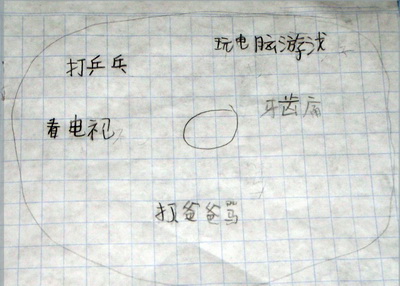 玩电脑游戏
打乒乓
牙齿痛
看电视
爸爸骂